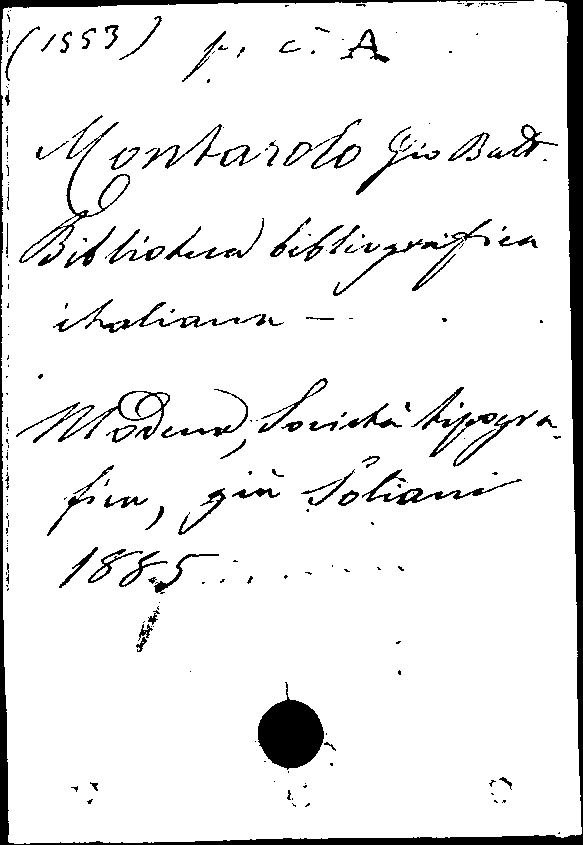 (1553) p. c. A
Montarolo Gio Batt.
Biblioteca bibliografica
italiana —
Modena, Società tipogra-
fica, già Soliani
1885